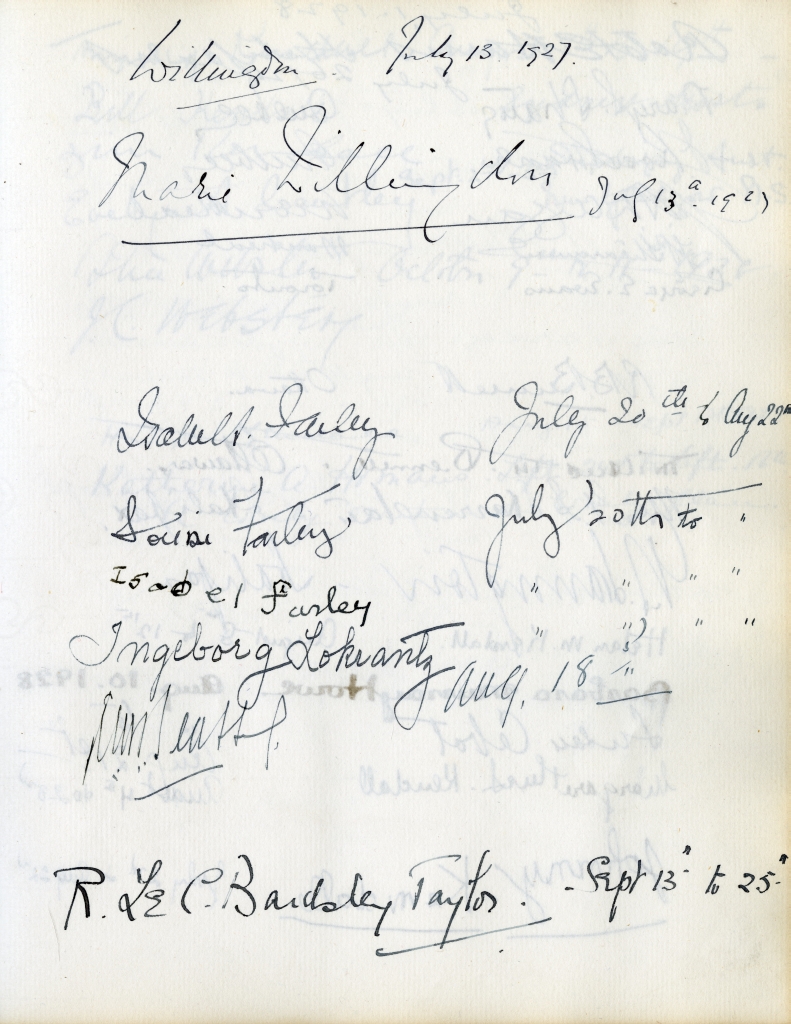 Willingdon. July 13. 1927.
Marie Willingdon July 13th 1927
Isabel H. Farley July 20th to Aug 22nd
Louise Farley July 20th to "
Isabel Farley " " " "
Ingeborg Lokrantz " " " "
Aug. 18th
R. Le C. Bardsley Taylor. - Sept 13" to 25"